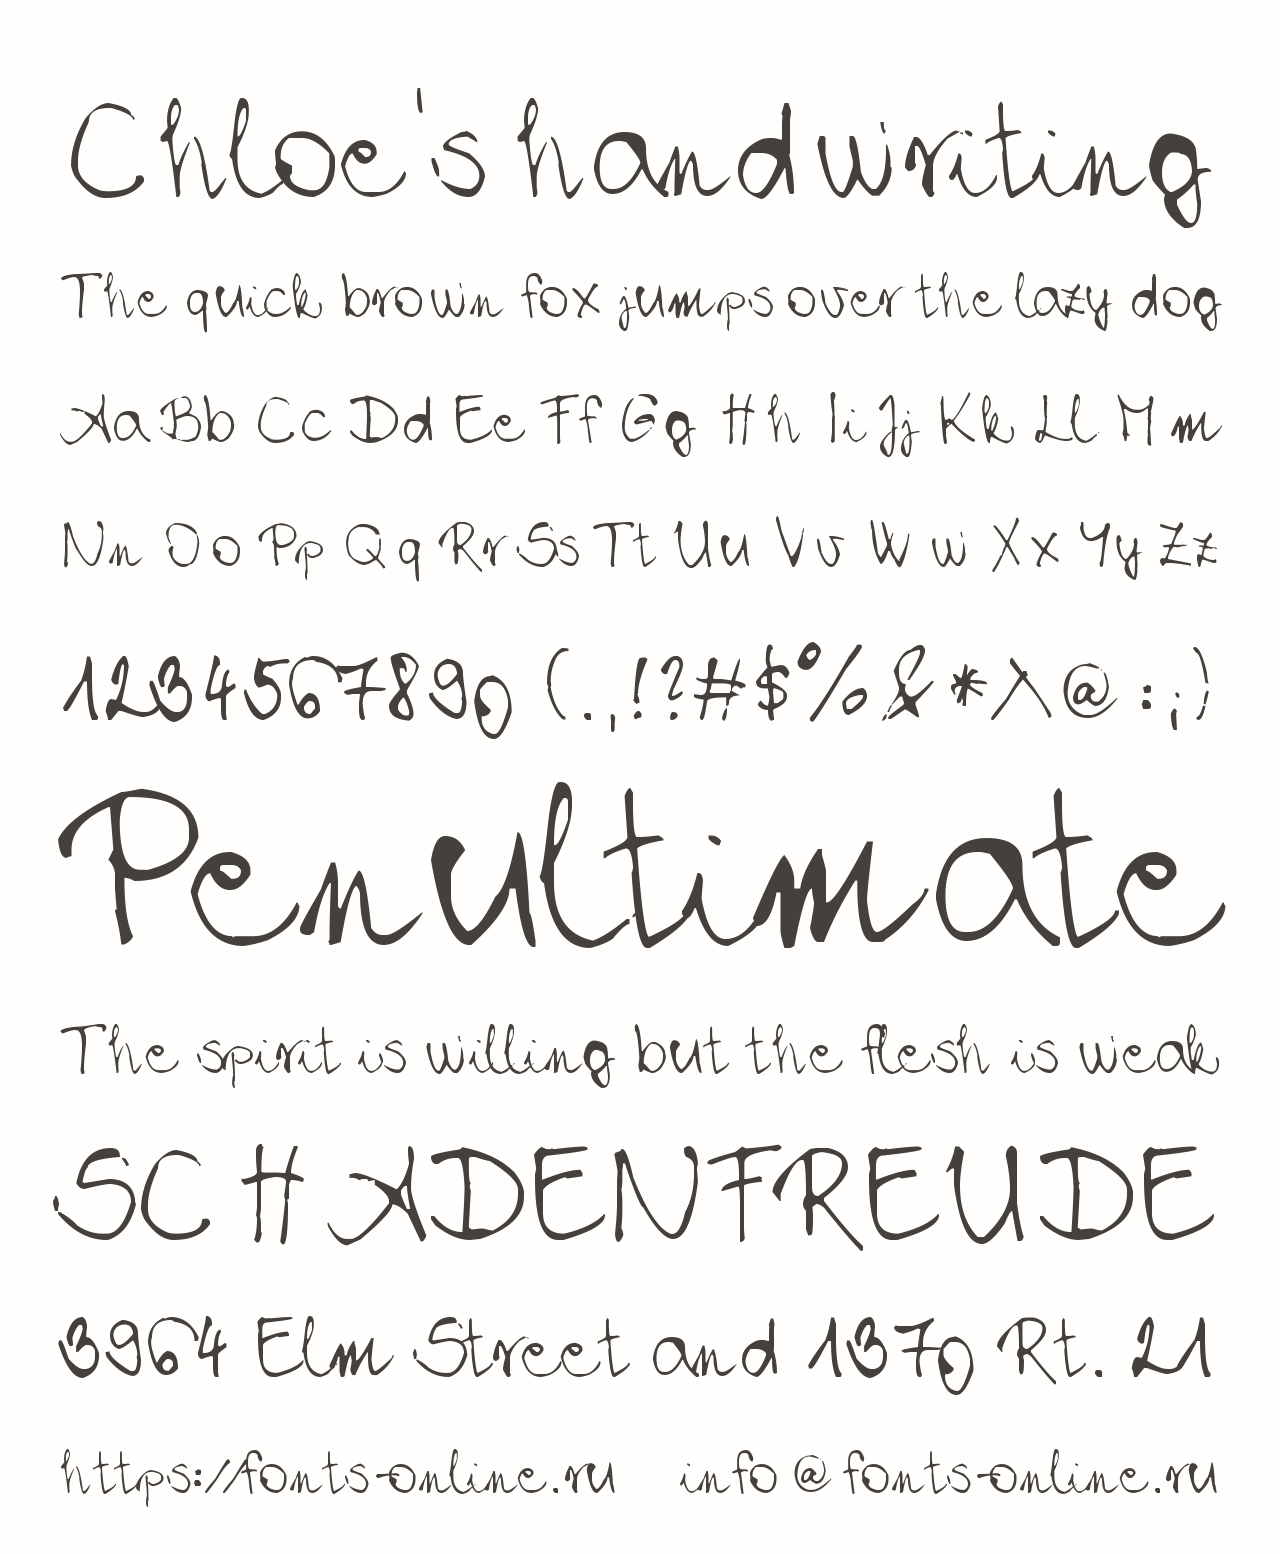 Chloe's handwriting
The quick brown fox jumps over the lazy dog
Aa Bb Cc Dd Ee Ff Gg Hh Ii Jj Kk Ll Mm
Nn Oo Pp Qq Rr Ss Tt Uu Vv Ww Xx Yy Zz
1234567890 (.,!?#$%&*^@:;)
Penultimate
The spirit is willing but the flesh is weak
SCHADENFREUDE
3964 Elm Street and 1370 Rt. 21
https://fonts-online.ru info@fonts-online.ru